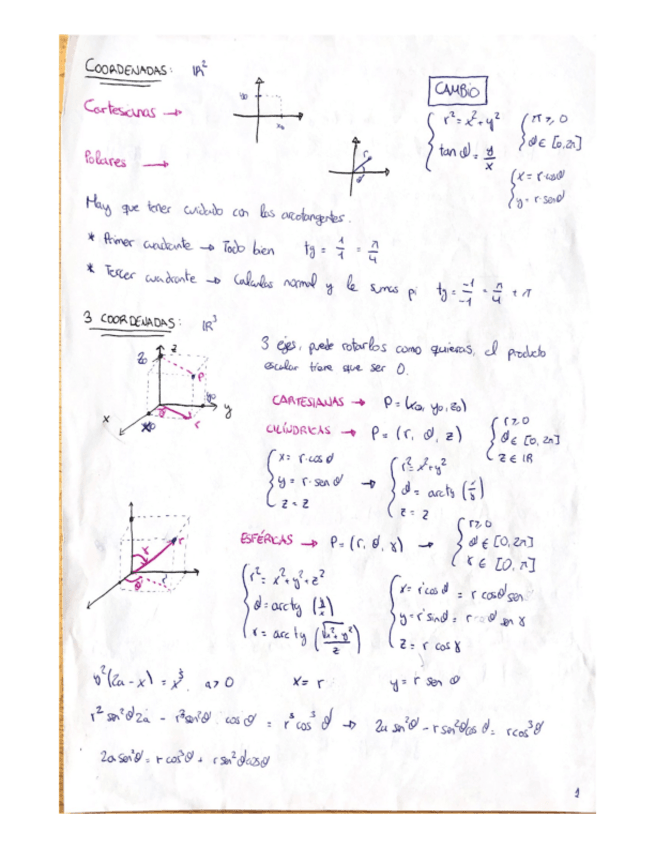 COORDENADAS: ℝ²
CAMBIO
Cartesianas →
y₀
x₀
{ r² = x² + y²
tan θ = y/x
{ r ≥ 0
θ ∈ [0, 2π]
Polares →
r
θ
{ x = r·cos θ
y = r·sen θ
Hay que tener cuidado con las arcotangentes.
* Primer cuadrante → Todo bien tg = 1/1 = π/4
* Tercer cuadrante → Calculas normal y le sumas pi tg = -1/-1 = π/4 + π
3 COORDENADAS: ℝ³
3 ejes, puede rotarlos como quieras, el producto
escalar tiene que ser 0.
z₀ z
P
y₀
y
x
θ r
CARTESIANAS → P = (x₀, y₀, z₀)
CILÍNDRICAS → P = (r, θ, z)
{ r ≥ 0
θ ∈ [0, 2π]
z ∈ ℝ
{ x = r·cos θ
y = r·sen θ
z = z
→
{ r² = x² + y²
z = z
ESFÉRICAS → P = (r, θ, γ) →
{ r ≥ 0
θ ∈ [0, 2π]
γ ∈ [0, π]
γ r
θ r'
{ r² = x² + y² + z²
γ = arctg (√(x² + y²)/z)
{ x = r'cos θ = r cos θ sen
y = r'sin θ = r θ sen γ
z = r cos γ
y²(2a - x) = x³, a > 0 x = r y = r sen θ
r² sen²θ 2a - r³ sen²θ · cos θ = r³ cos³ θ → 2a sen²θ - r sen²θ cos θ = r cos³θ
2a sen²θ = r cos³θ + r sen²θ cos θ
1